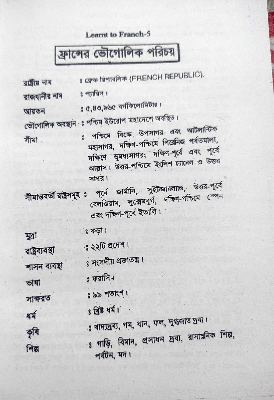 Learnt to Franch-5
ফ্রান্সের ভৌগোলিক পরিচয়
রাষ্ট্রীয় নাম : ফ্রেঞ্চ রিপাবলিক (FRENCH REPUBLIC).
রাজধানীর নাম : প্যারিস।
আয়তন : ৫,৪৩,৯৬৫ বর্গকিলোমিটার।
ভৌগোলিক অবস্থান : পশ্চিম ইউরোপ মহাদেশে অবস্থিত।
সীমা : পশ্চিমে বিস্কে উপসাগর এবং আটলান্টিক
মহাসাগর, দক্ষিণ-পশ্চিমে পিরেনিজ পর্বতমালা,
দক্ষিণে ভূমধ্যসাগর; দক্ষিণ-পূর্বে এবং পূর্বে
আল্পস। উত্তর-পশ্চিমে ইংলিশ চ্যানেল ও উত্তর
সাগর।
সীমান্তবর্তী রাষ্ট্রসমূহ : পূর্বে জার্মানি, সুইটজারল্যান্ড, উত্তর-পূর্বে
বেলজিয়াম, লুক্সেমবুর্গ, দক্ষিণ-পশ্চিমে স্পেন-
এবং দক্ষিণ-পূর্বে ইতালি।
মুদ্রা : ফ্রাঁ।
রাষ্ট্রব্যবস্থা : ২২টি প্রদেশ।
শাসন ব্যবস্থা : সংসদীয় প্রজাতন্ত্র।
ভাষা : ফরাসি।
সাক্ষরতা : ৯৯ শতাংশ।
ধর্ম : খ্রিষ্ট ধর্ম।
কৃষি : খাদ্যদ্রব্য, গম, ধান, ফল, দুগ্ধজাত দ্রব্য।
শিল্প : গাড়ি, বিমান, প্রসাধন দ্রব্য, রাসায়নিক শিল্প,
পর্যটন, মদ।